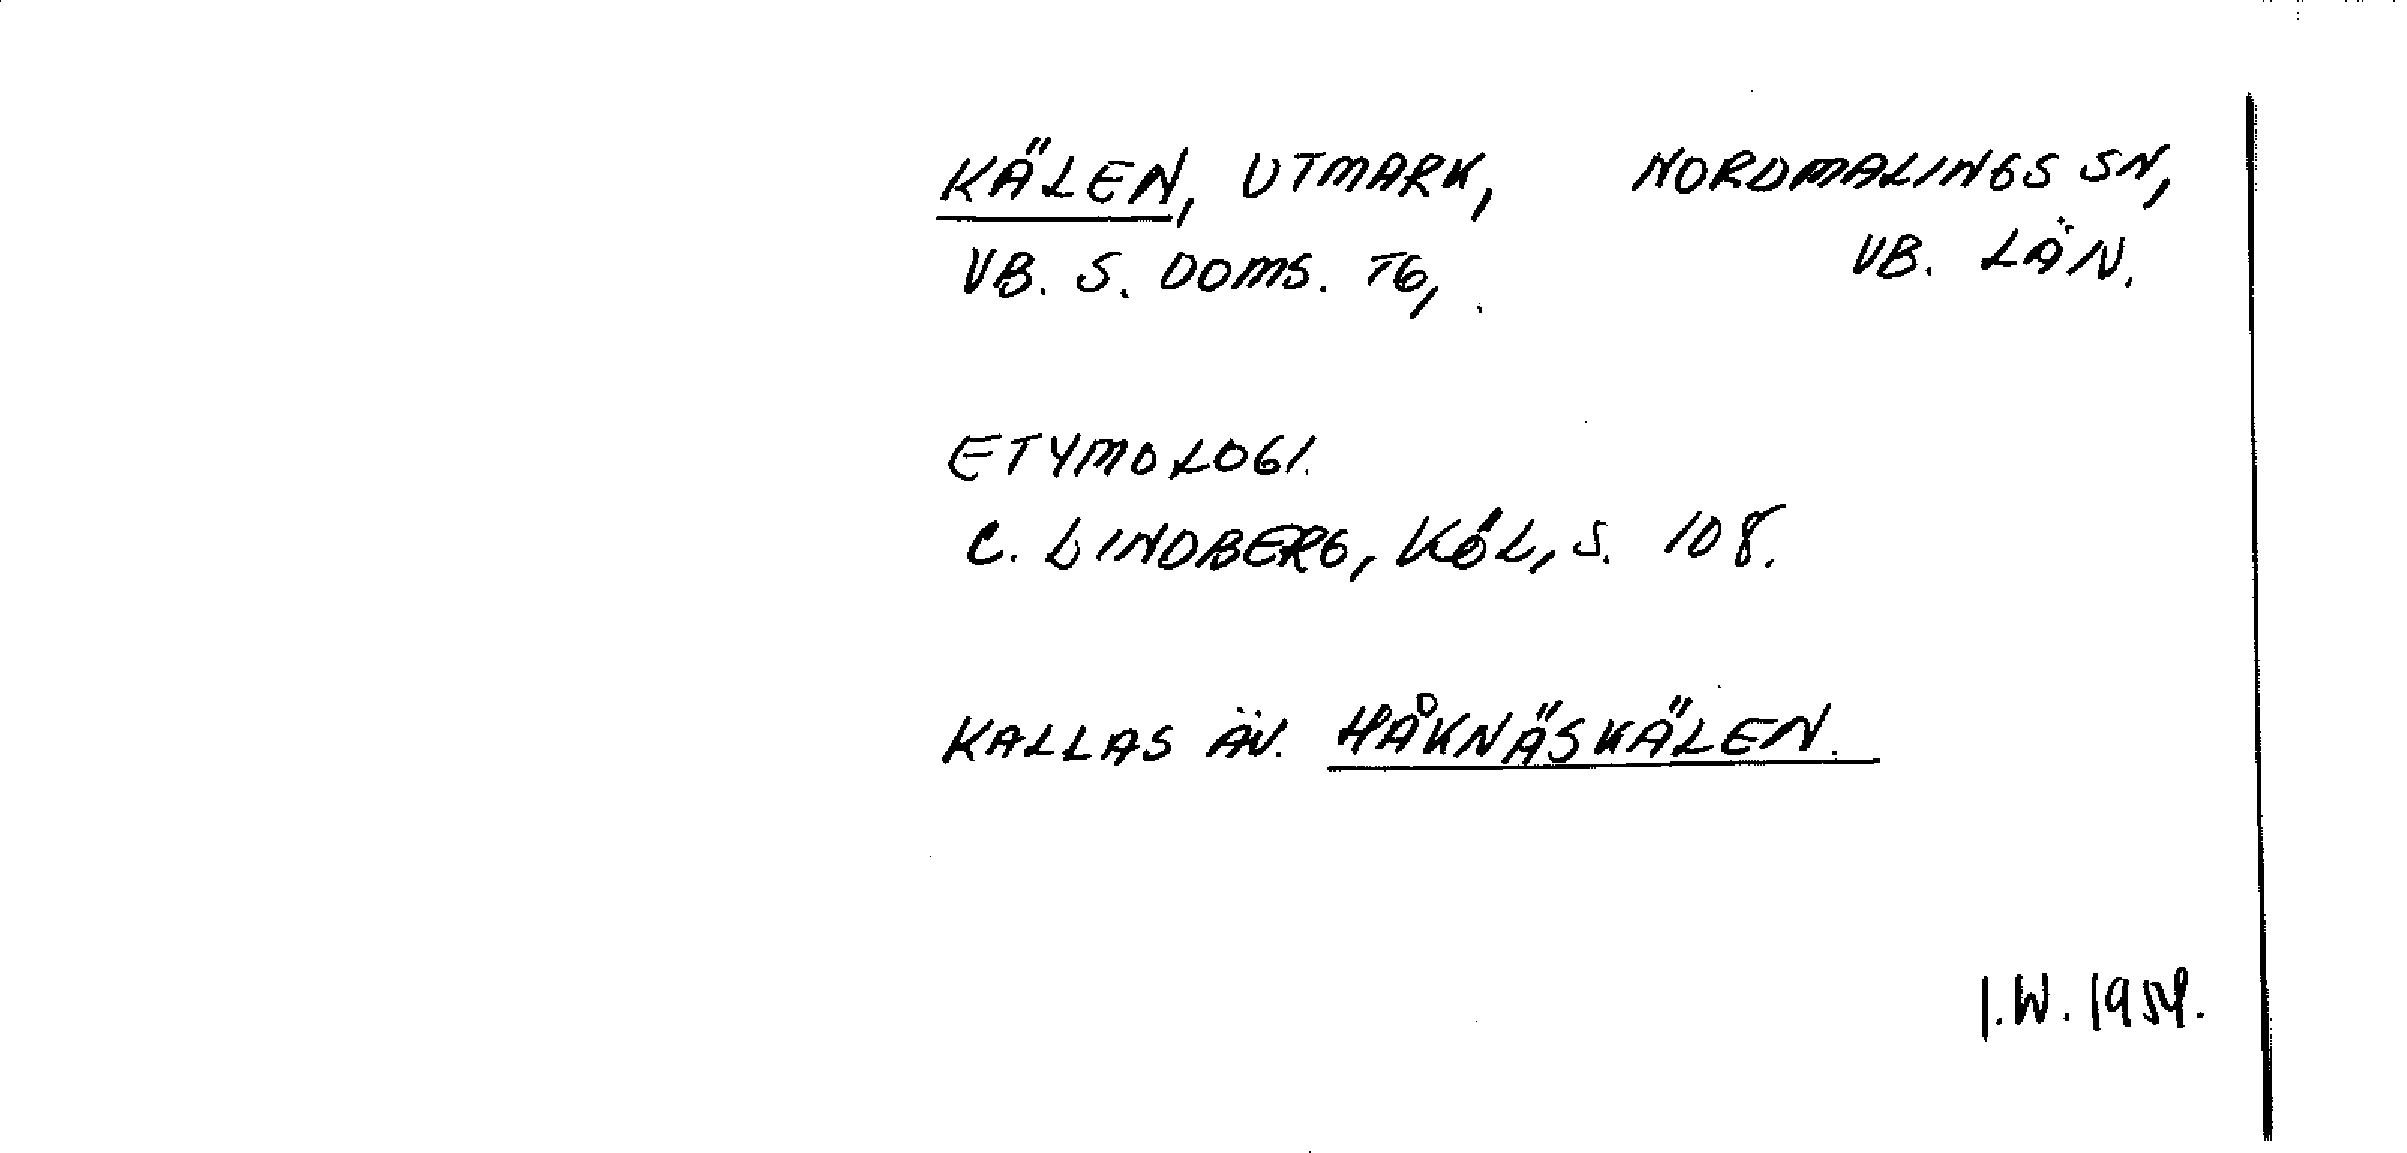 KÄLEN, UTMARK, NORDMALINGS SN,
VB. S. DOMS. TG, VB. LÄN.
ETYMOLOGI.
C. LINDBERG, KÖL, S. 108.
KALLAS ÄV. HÅKNÄSKÄLEN.
I.W. 1954.